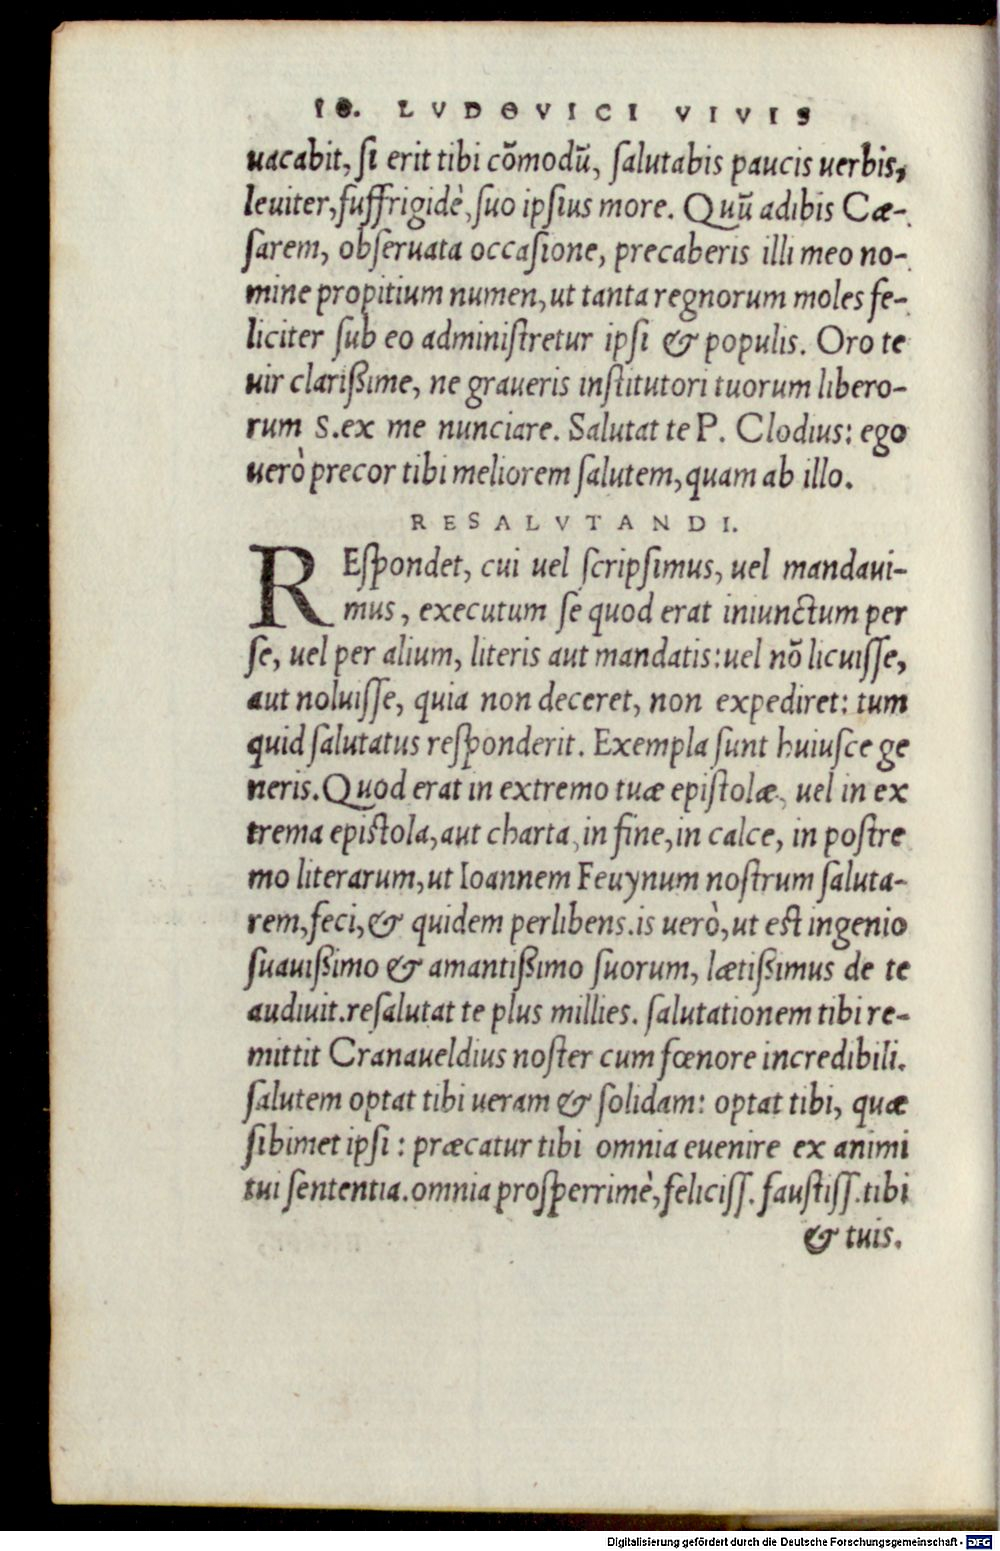 IO. LVDOVICI VIVIS
uacabit, ſi erit tibi cōmodū, ſalutabis paucis uerbis,
leuiter, ſuffrigidè, ſuo ipſius more. Quū adibis Cæ-
ſarem, obſeruata occaſione, precaberis illi meo no-
mine propitium numen, ut tanta regnorum moles fe-
liciter ſub eo adminiſtretur ipſi & populis. Oro te
uir clarißime, ne graueris inſtitutori tuorum libero-
rum S.ex me nunciare. Salutat te P. Clodius: ego
uerò precor tibi meliorem ſalutem, quam ab illo.
RESALVTANDI.
REſpondet, cui uel ſcripſimus, uel mandaui-
mus, executum ſe quod erat iniunctum per
ſe, uel per alium, literis aut mandatis: uel nō licuiſſe,
aut noluiſſe, quia non deceret, non expediret: tum
quid ſalutatus reſponderit. Exempla ſunt huiuſce ge
neris. Quod erat in extremo tuæ epiſtolæ, uel in ex
trema epiſtola, aut charta, in fine, in calce, in poſtre
mo literarum, ut Ioannem Feuynum noſtrum ſaluta-
rem, feci, & quidem perlibens. is uerò, ut eſt ingenio
ſuauißimo & amantißimo ſuorum, lætißimus de te
audiuit. reſalutat te plus millies. ſalutationem tibi re-
mittit Cranaueldius noſter cum fœnore incredibili.
ſalutem optat tibi ueram & ſolidam: optat tibi, quæ
ſibimet ipſi: præcatur tibi omnia euenire ex animi
tui ſententia. omnia proſperrimè, feliciſſ. fauſtiſſ. tibi
& tuis.
Digitalisierung gefördert durch die Deutsche Forschungsgemeinschaft - DFG